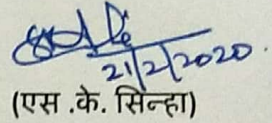 21/2/2020.
(एस .के. सिन्हा)